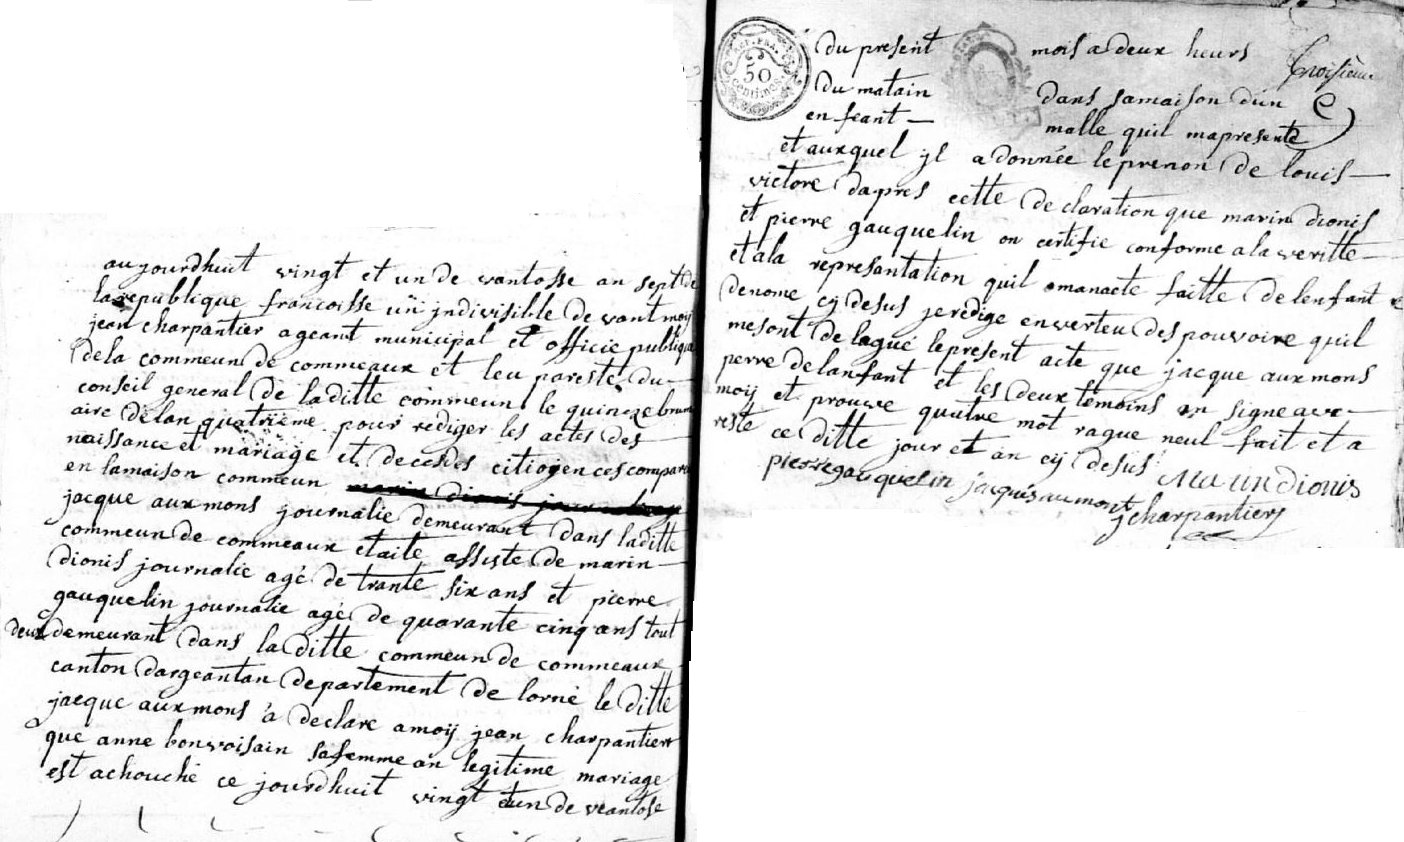 aujourdhuit vingt et un de vantosse an sept de
la republique francoisse un jndivisible devant moij
jean charpantier ageant municipal et officie publique
dela commeun de commeaux et leu pareste du
conseil general de laditte commeun le quinzze brum
aire delan quatrieme pour rediger les actes des
naissance et mariage et decesdes citioyen ces compare
en lamaison commeun marin dionis journalie
jacque aux mons journalie demeurant dans laditte
commeun de commeaux etaite assiste de marin
dionis journalie agé de trante six ans et pierre
gauquelin journalie agé de quarante cinq ans tout
deux demeurant dans la ditte commeun de commeaux
canton dargeantan departement de lorne le ditte
jacque aux mons a declare a moij jean charpantierr
que anne bonvoisain safemme an legitime mariage
est achouché ce jourdhuit vingt etun de veantose
REP. FRA.
50
centimes
troisieme
du present mois a deux heurs
du matain dans samaison dun
enfeant malle quil mapresente
et auxquel jl a donnée leprenon de louis
victore dapres cette declaration que marin dionis
et pierre gauquelin on certifie conforme a la veritte
etala represantation quil omanacte faitte de lenfant
denome cij desus je redige enverteu des pouvoire quil
mesont delegué lepresent acte que jacque aux mons
perre delanfant et les deux temoins on signe avec
moij et prouve quatre mot raque neul fait et a
reste ce ditte jour et an cij desus Marin dionis
pierre gauquelin jacquis aumont
jcharpantierr